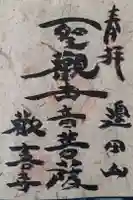 奉拝
邊田山
聖観世音菩薩
歓喜寺